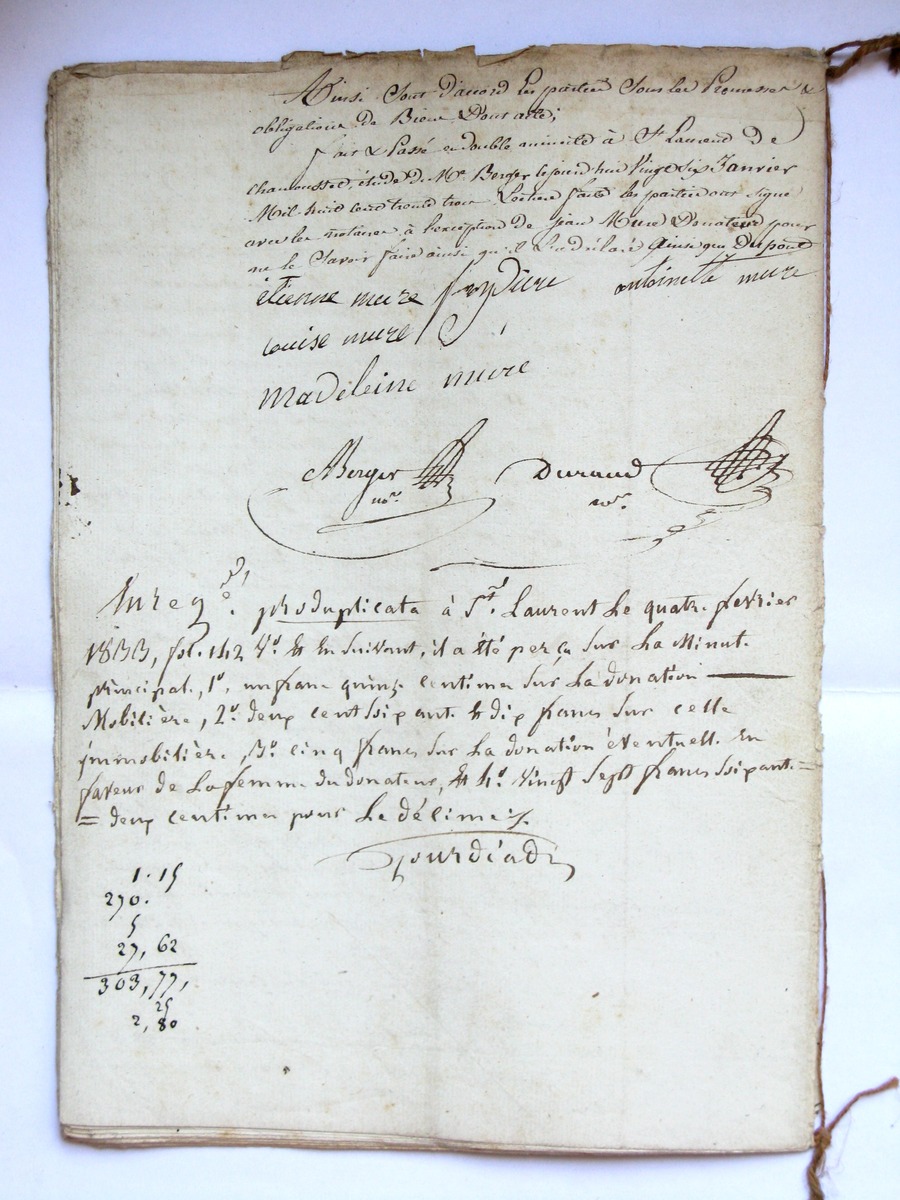 Ainsi sont d'accord les parties sous les Promesses &
obligations de Biens Dont acte;
fait & Passé en double minute à St Laurend de
chamousset, étude de Me Berger le jourd'hui Vingt six Janvier
Mil huit cent trente trois Lecture faite les parties ont signé
avec les notaires à l'exception de jean Mure Donateur pour
ne le Savoir faire ainsi qu'il l'a déclaré ainsi que Dupont
etienne mure antoinette mure
louise mure
madeleine mure
Berger Durand
nore. nore.
Enregé. pro duplicata à St. Laurent le quatre fevrier
1833, fol. 142 Vo. et en suivant, il a été perçu sur la Minute
principale, 1o. un franc quinze centimes sur la donation
Mobilière, 2o. deux cent ssoixante & dix francs sur celle
immobilière, 3o. cinq francs sur la donation éventuelle en
faveur de la femme du donateur, et 4o. vingt sept francs ssoixante=
=deux centimes pour le décime ./.
1.15
270.
5
27,62
303,77,
25
2,80